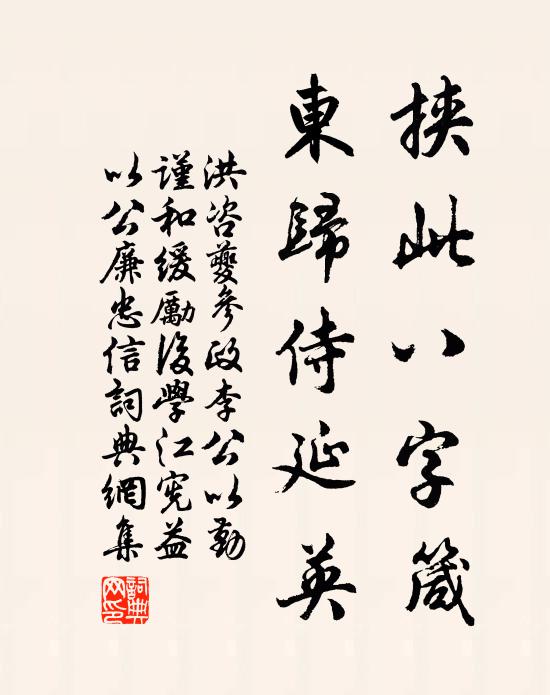 挾此八字箴
東歸侍延英
洪咨夔參政李公以勤
謹和緩厲後學江憲益
以公廉忠信詞典網集
詞典网印